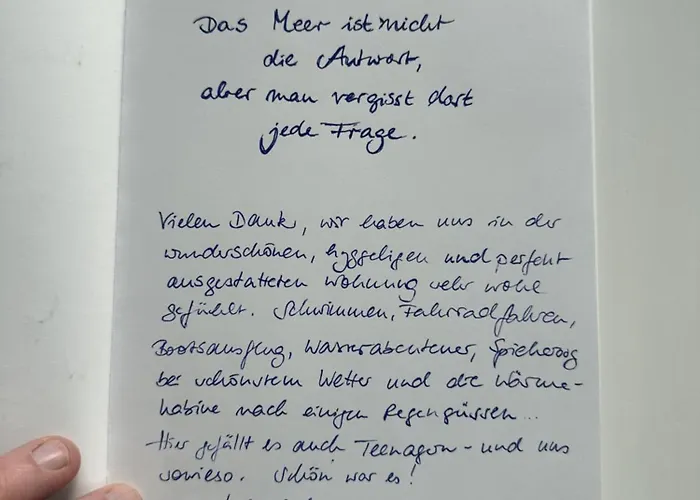 Das Meer ist nicht
die Antwort,
aber man vergisst dort
jede Frage.
Vielen Dank, wir haben uns in der
wunderschönen, hyggeligen und perfekt
ausgestatteten Wohnung sehr wohl
gefühlt. Schwimmen, Fahrradfahren,
Bootsausflug, Wasserabenteuer, Spiekeroog
bei schönstem Wetter und die Wärme-
kabine nach einigen Regengüssen...
Hier gefällt es auch Teenagern - und uns
sowieso. Schön war es!